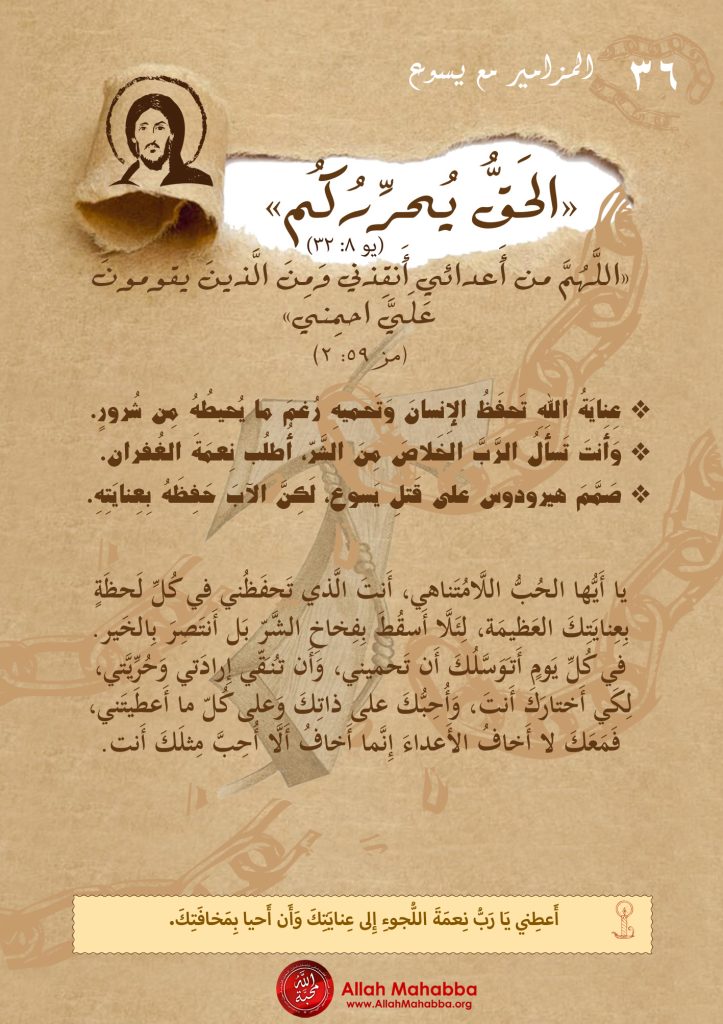 ٣٦ المزامير مع يسوع
«الحَقُّ يُحرِّرُكُم»
(يو ٨: ٣٢)
«اللَّهُمَّ من أَعدائي أَنقِذني وَمِنَ الَّذينَ يقومونَ
عَلَيَّ احمِني»
(مز ٥٩: ٢)
❖ عِنايَةُ اللهِ تَحفَظُ الإِنسانَ وَتَحميهِ رُغمَ ما يُحيطُهُ مِن شُرورٍ.
❖ وَأَنتَ تَسأَلُ الرَّبَّ الخَلاصَ مِنَ الشَّرّ، أُطلُب نِعمَةَ الغُفران.
❖ صَمَّمَ هيرودوس على قَتلِ يَسوع، لَكِنَّ الآبَ حَفِظَهُ بِعِنايَتِهِ.
يا أَيُّها الحُبُّ اللَّامُتَناهي، أَنتَ الَّذي تَحفَظُني في كُلِّ لَحظَةٍ
بِعِنايَتِكَ العَظيمَة، لِئَلَّا أَسقُطَ بِفِخاخِ الشَّرّ بَل أَنتَصِرَ بِالخَير.
في كُلِّ يَومٍ أَتَوَسَّلُكَ أَن تَحمِيَني، وَأَن تُنَقّي إِرادَتي وَحُرِّيَّتي،
لِكَي أَختارَكَ أَنتَ، وَأُحِبُّكَ على ذاتِكَ وَعلى كُلّ ما أَعطَيتَني،
فَمَعَكَ لا أَخافُ الأَعداءَ إِنَّما أَخافُ أَلَّا أُحِبَّ مِثلَكَ أَنت.
أَعطِني يَا رَبُّ نِعمَةَ اللُّجوءِ إِلى عِنايَتِكَ وَأَن أَحيا بِمَخافَتِكَ.
الله محبّة
Allah Mahabba
www.AllahMahabba.org